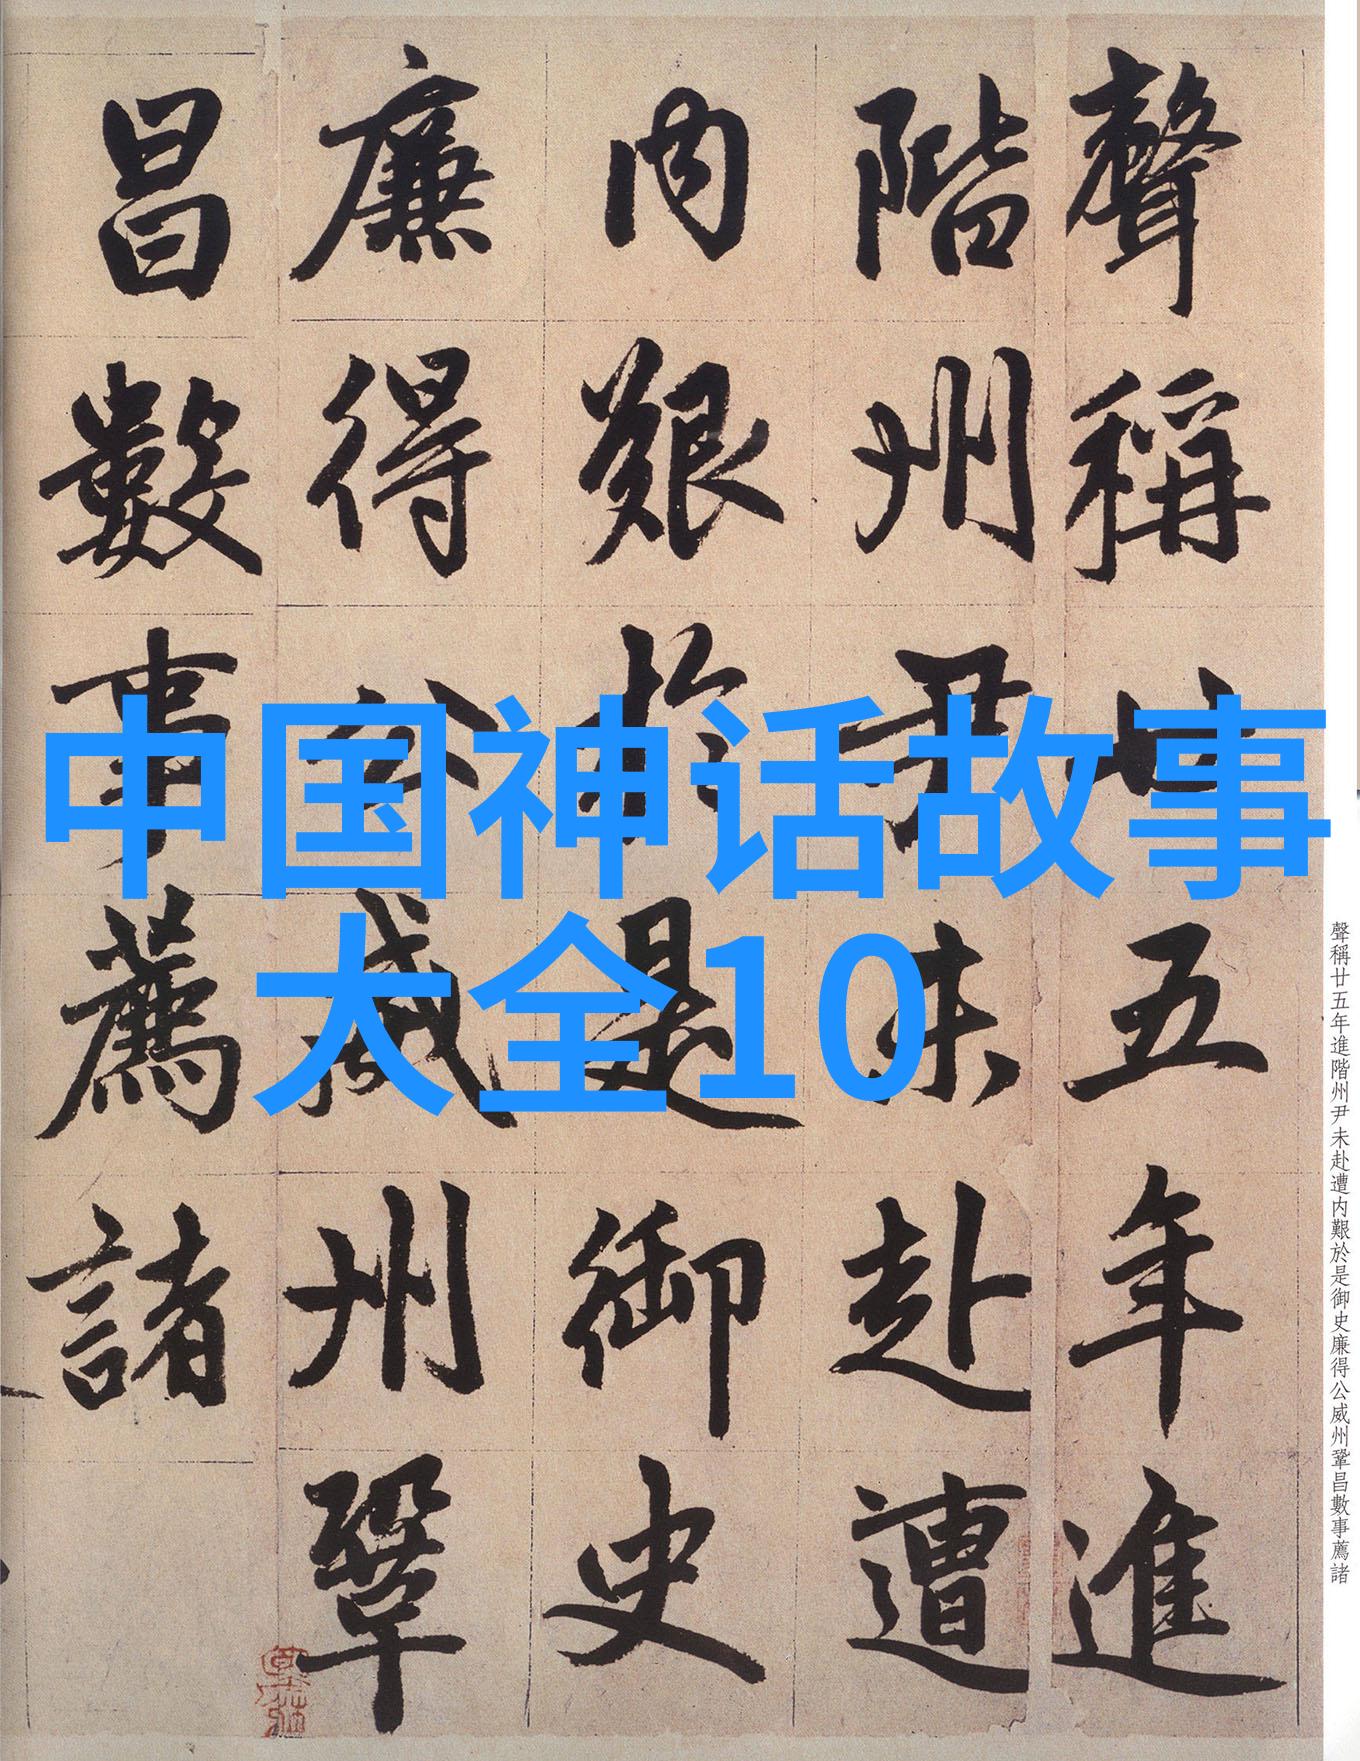 聲稱廿五年進
階州尹未赴遭
内艱於是御史
廉得公威州鞏
昌數事薦諸
中国神话故事
大全10
聲稱廿五年進階州尹未赴遭内艱於是御史廉得公威州鞏昌數事薦諸